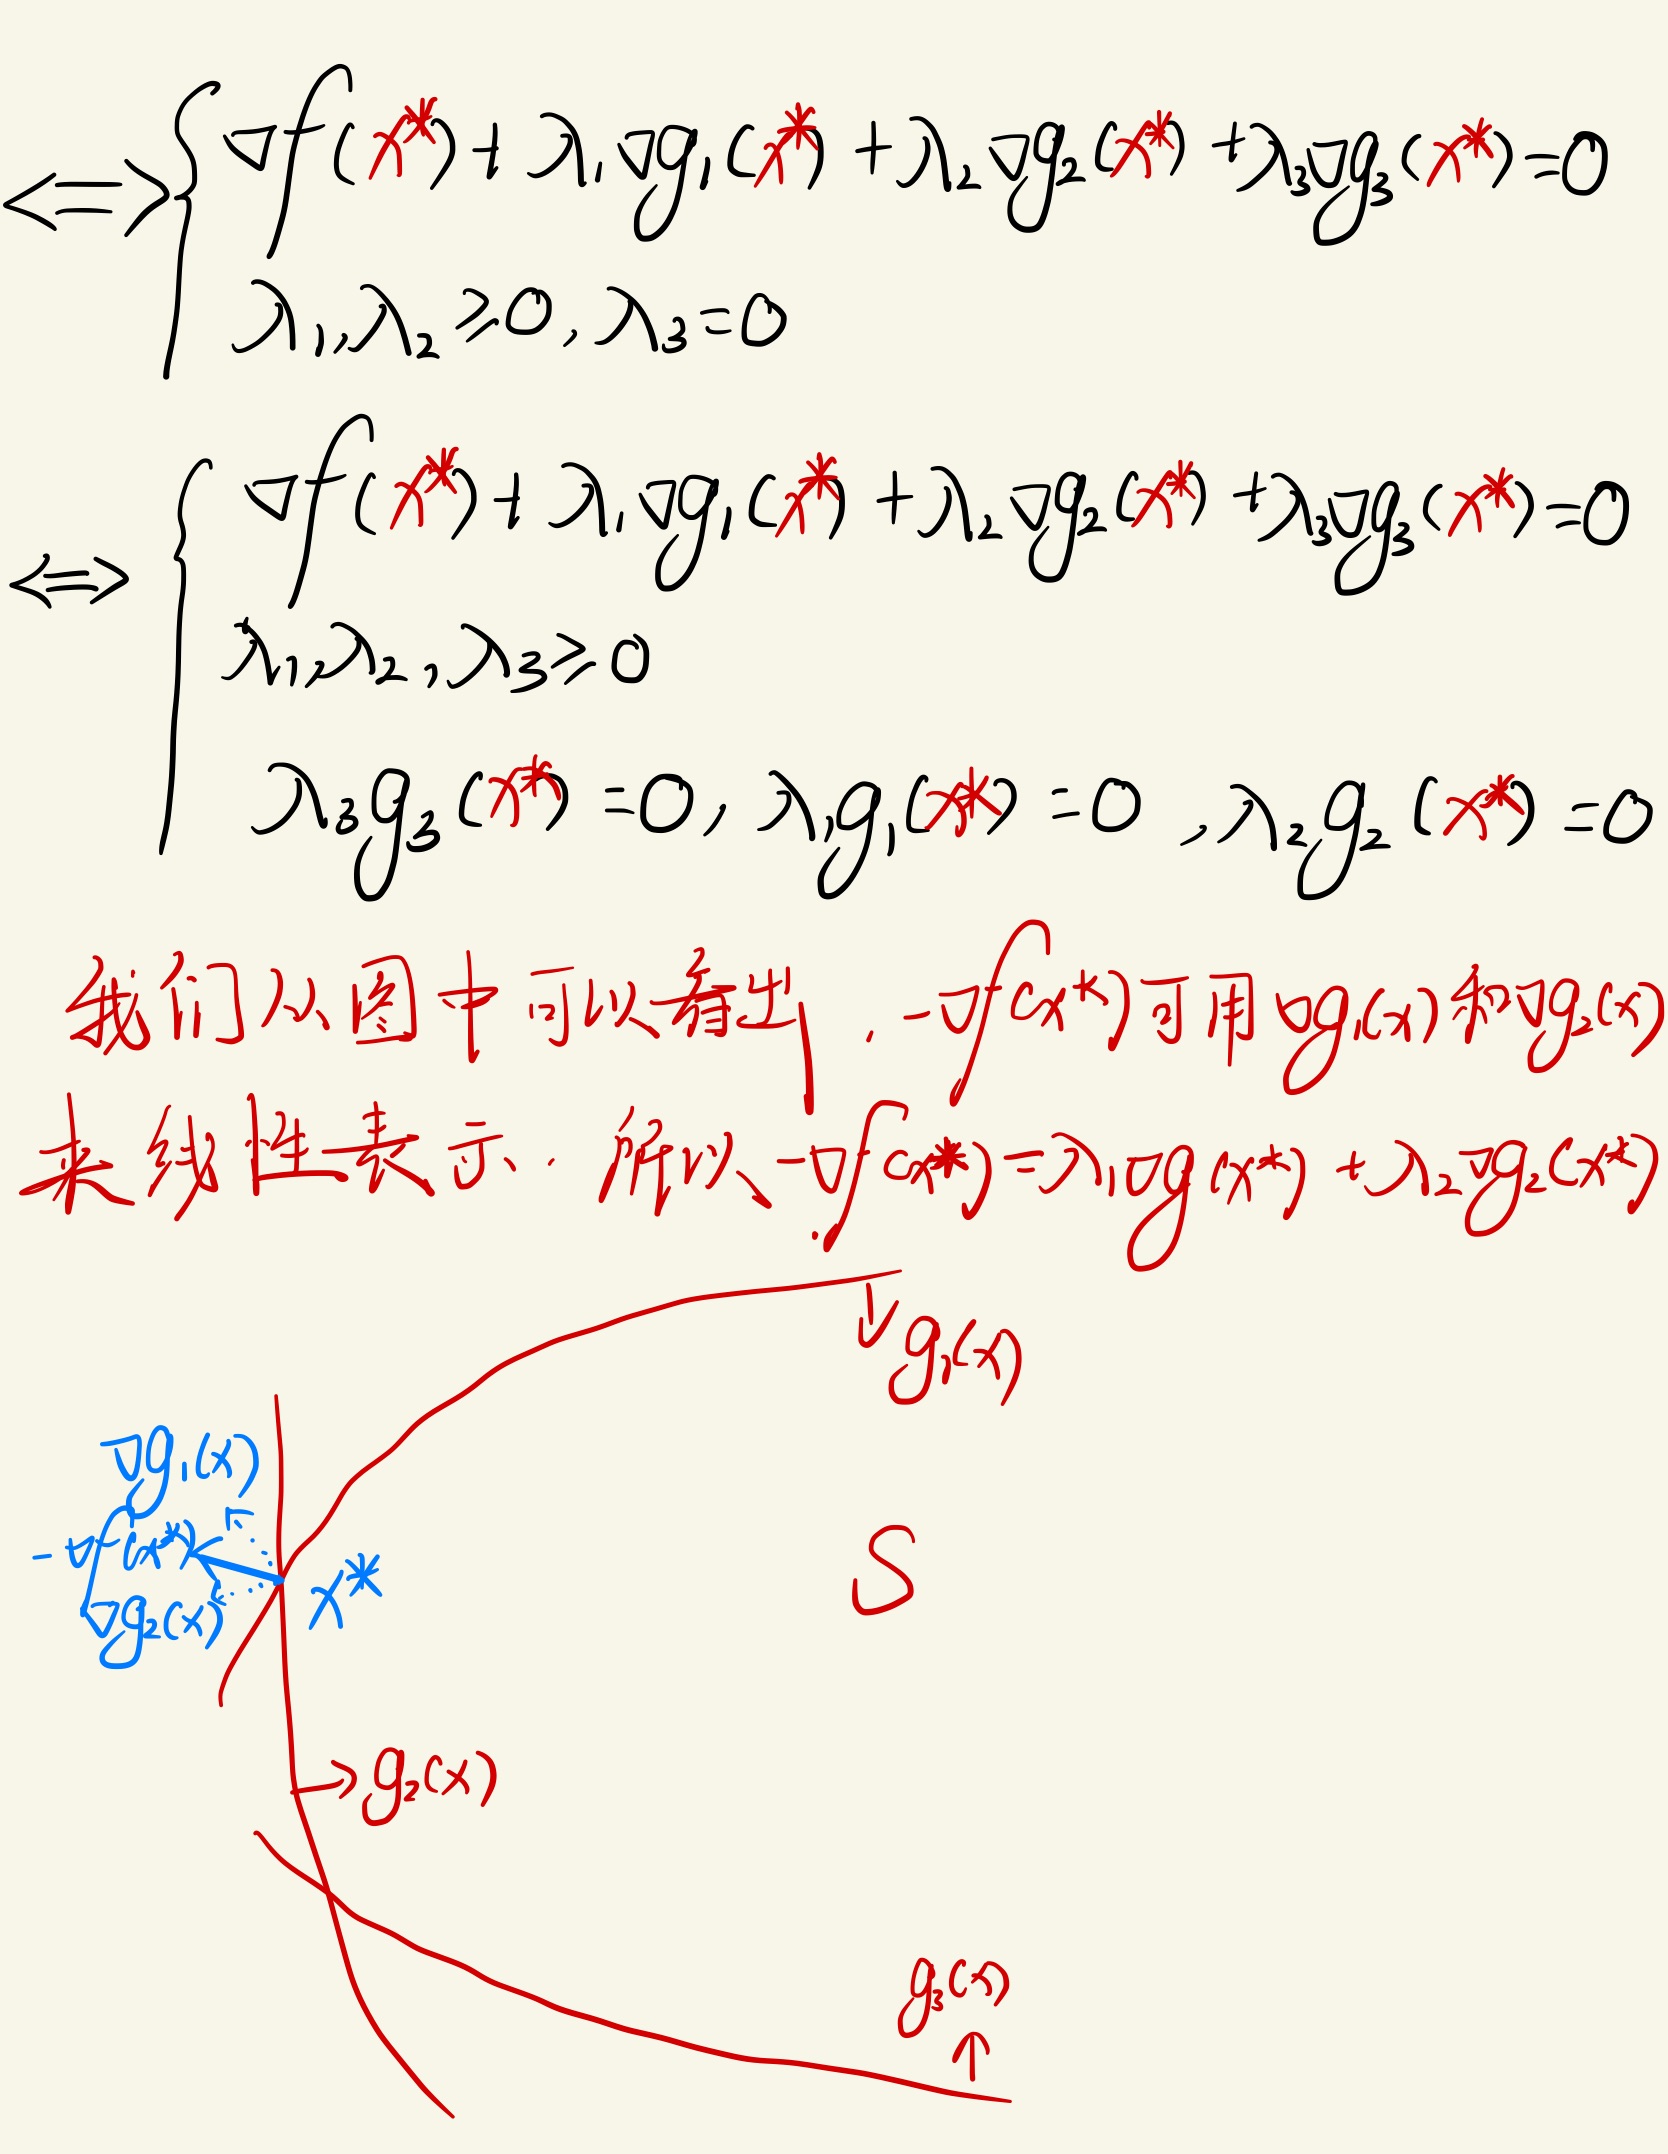 ⟺ { ∇f(x*) + λ₁∇g₁(x*) + λ₂∇g₂(x*) + λ₃∇g₃(x*) = 0
λ₁, λ₂ ⩾ 0, λ₃ = 0
⟺ { ∇f(x*) + λ₁∇g₁(x*) + λ₂∇g₂(x*) + λ₃∇g₃(x*) = 0
λ₁, λ₂, λ₃ ⩾ 0
λ₃g₃(x*) = 0, λ₁g₁(x*) = 0, λ₂g₂(x*) = 0
我们从图中可以看出, -∇f(x*)可用∇g₁(x)和∇g₂(x)
来线性表示. 所以, -∇f(x*) = λ₁∇g(x*) + λ₂∇g₂(x*)
g₁(x)
∇g₁(x)
S
-∇f(x*)
x*
∇g₂(x)
g₂(x)
g₃(x)